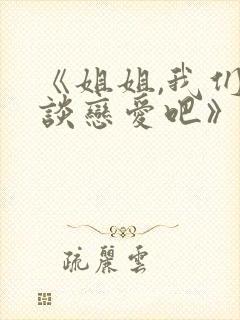 《姐姐,我们
談戀愛吧》
疏麗雲